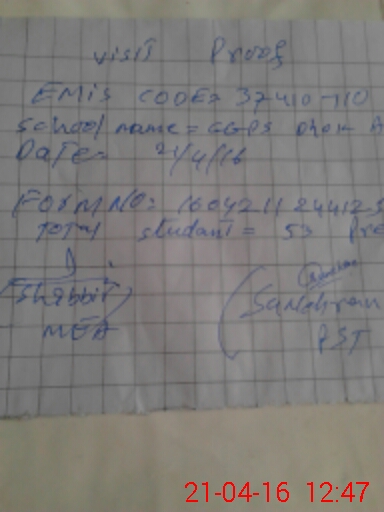 visit Proof
EMIS CODE= 37410-110
School name = GGPS Dhok A
DaTE= 21/4/16
FORM NO= 1604211244125
TOTL studant = 53 Pre
(Shabbir)
MEA
PST
21-04-16 12:47